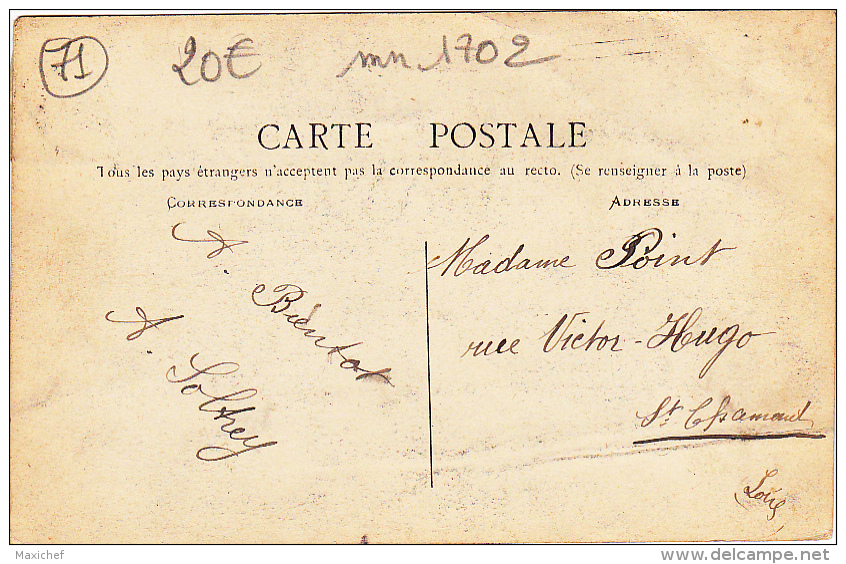 71 20€ mn 1702
CARTE POSTALE
Tous les pays étrangers n'acceptent pas la correspondance au recto. (Se renseigner à la poste)
CORRESPONDANCE
ADRESSE
A. Bientot
A. Soltrey
Madame Point
rue Victor-Hugo
St Chamond
Loire
Maxichef
delcampe.net